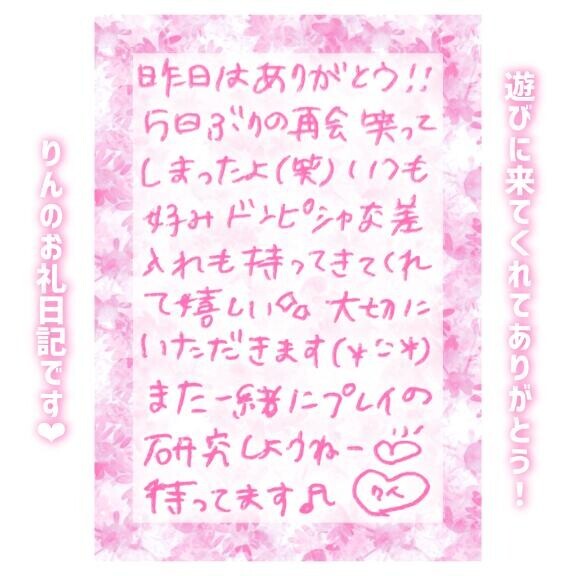 遊びに来てくれてありがとう！
昨日はありがとう!!
5日ぶりの再会 笑って
しまったよ(笑) いつも
好みドンピシャな差
入れも持ってきてくれ
て嬉しい 大切に
いただきます(*ᵕᵕ*)
また一緒にプレイの
研究しようねー
待ってます♫
りんのお礼日記です♥